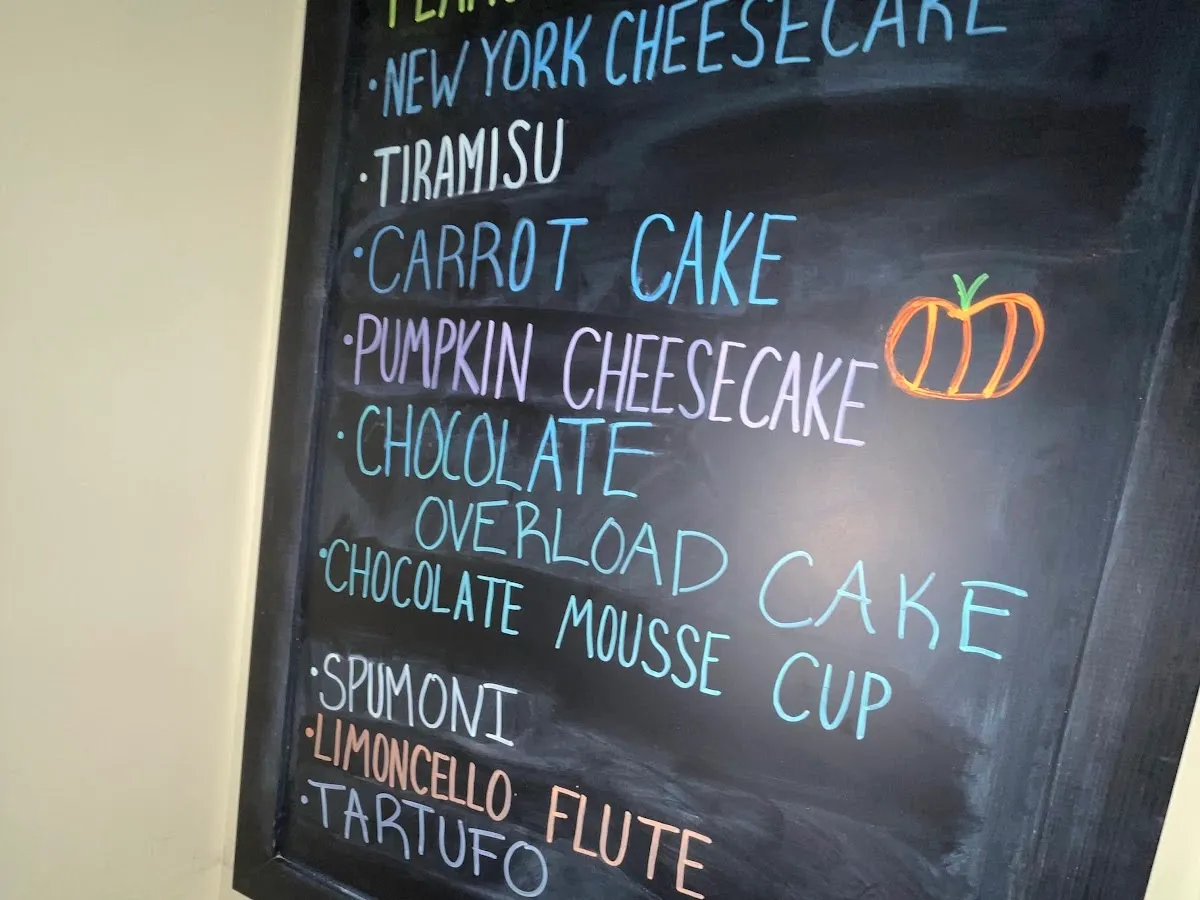 · NEW YORK CHEESECAKE
· TIRAMISU
· CARROT CAKE
· PUMPKIN CHEESECAKE
· CHOCOLATE
OVERLOAD CAKE
· CHOCOLATE MOUSSE CUP
· SPUMONI
· LIMONCELLO FLUTE
· TARTUFO